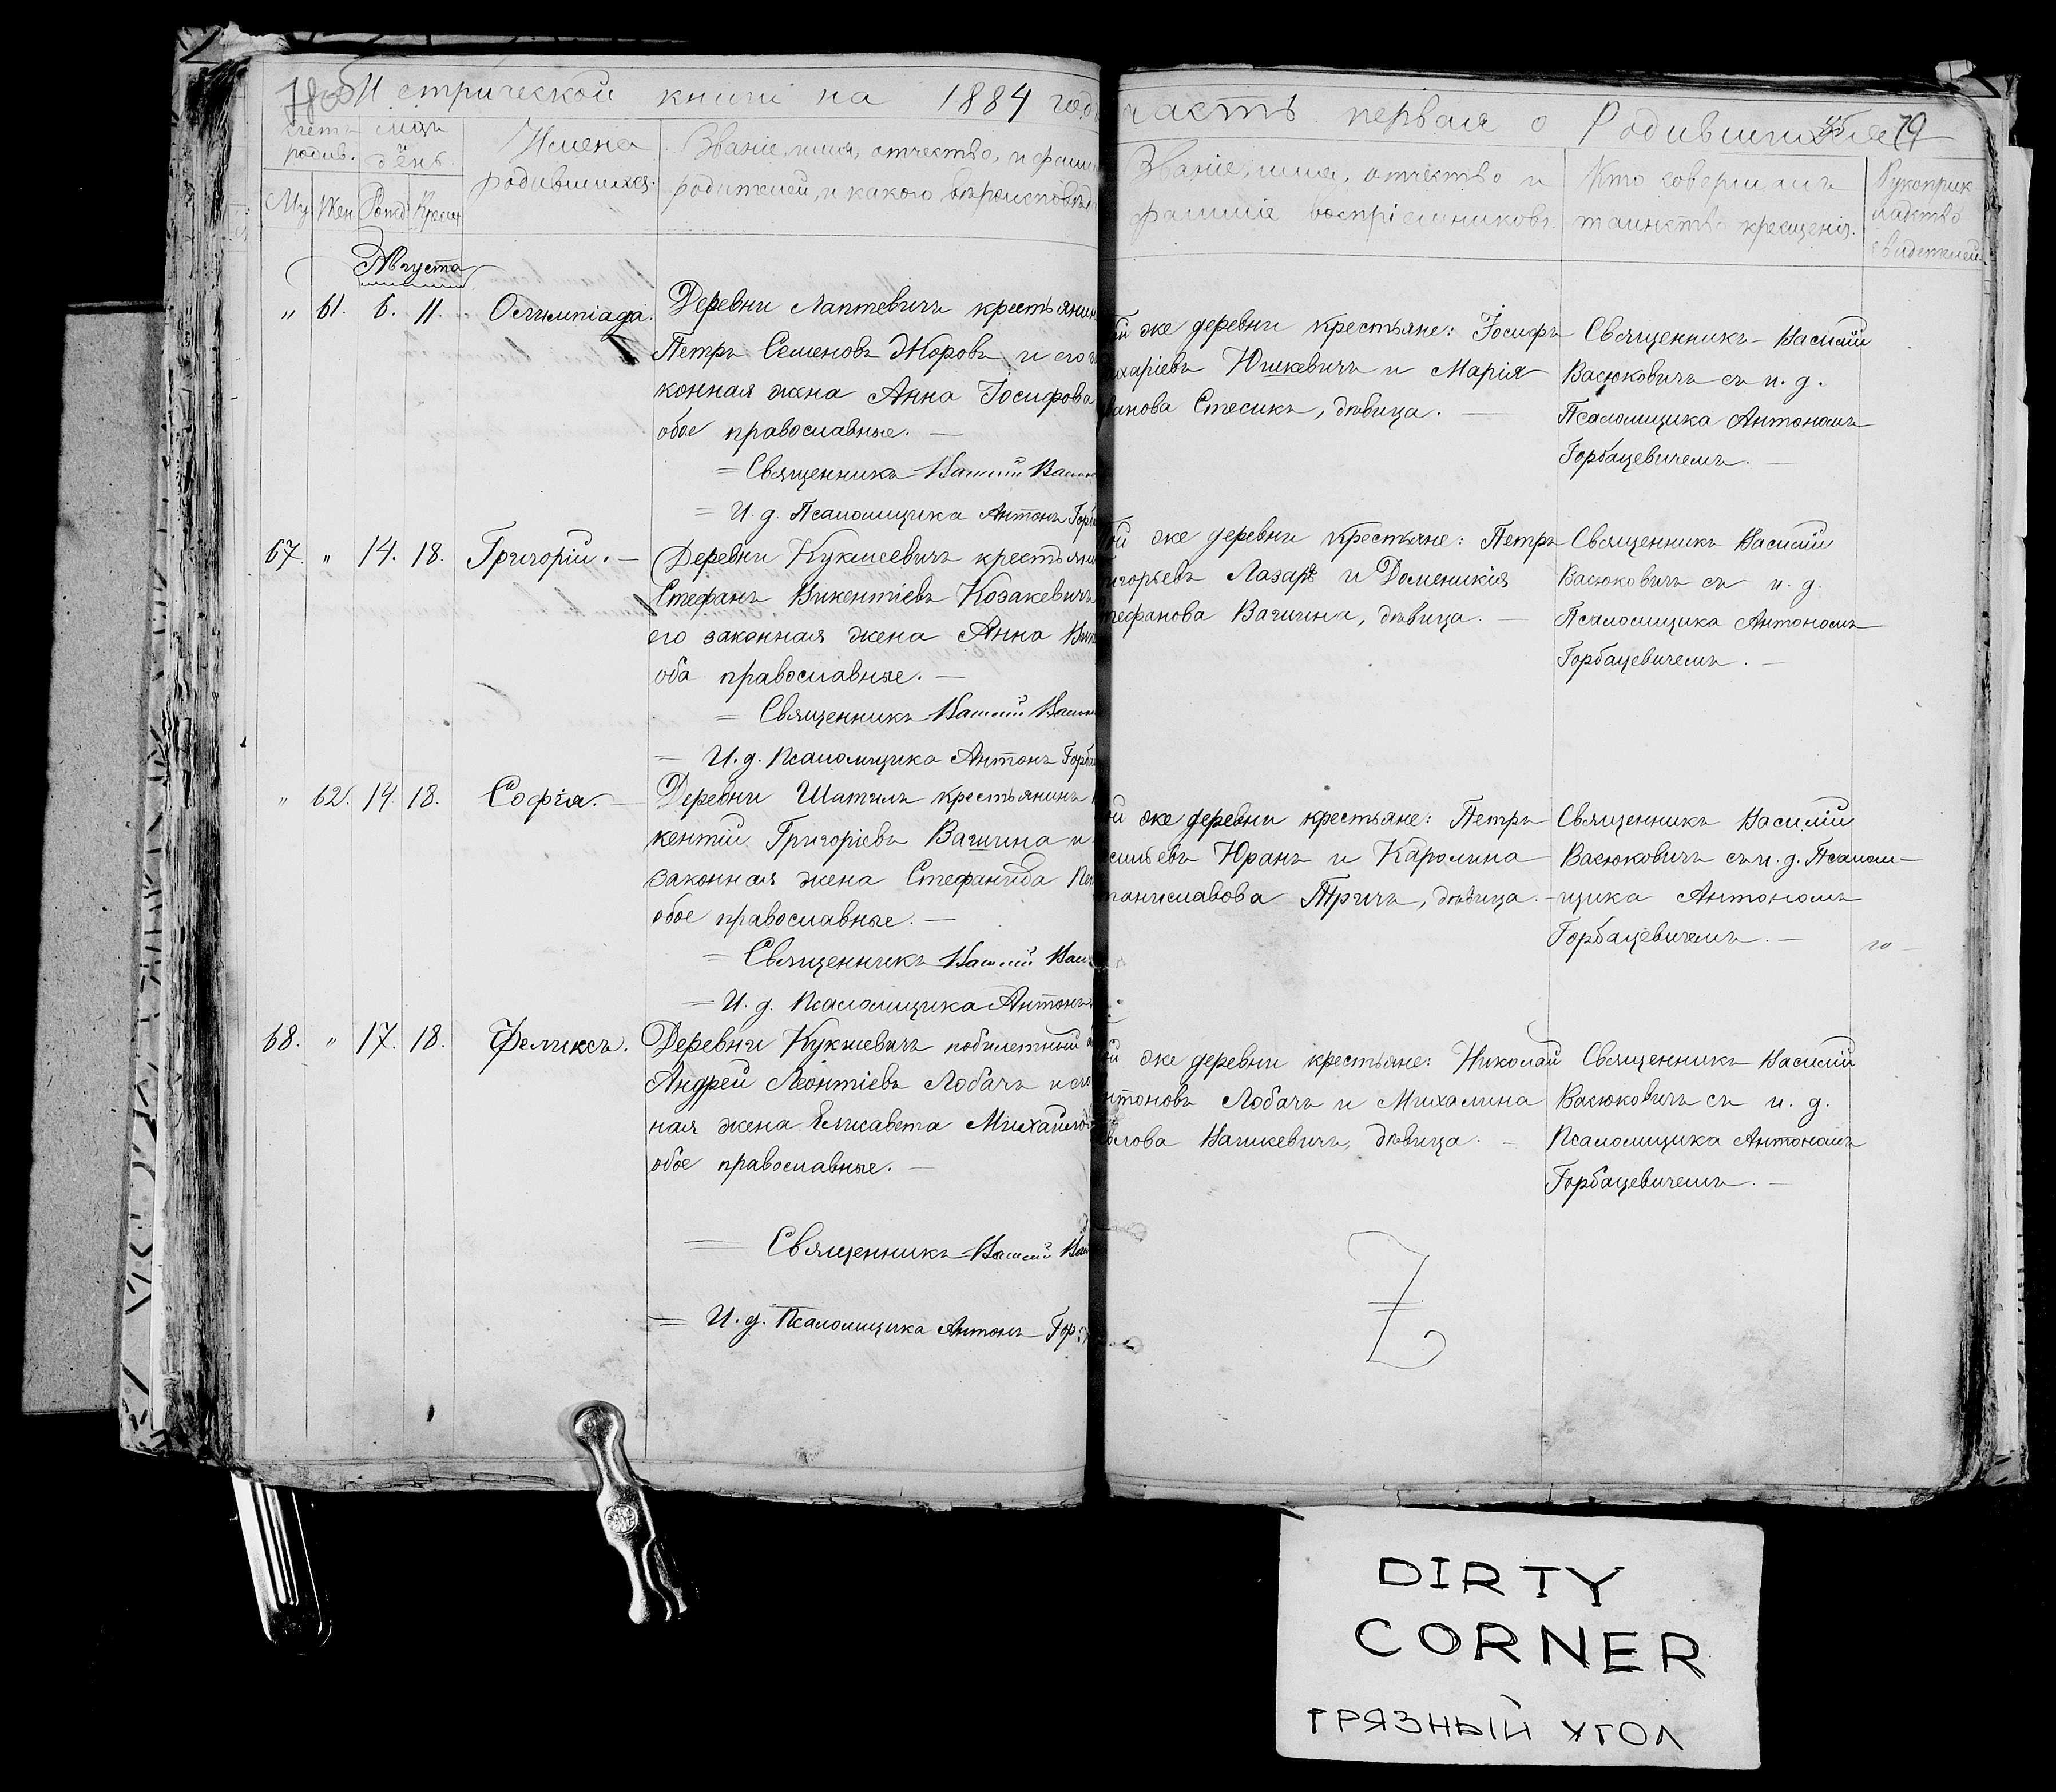 Метрической книги на 1884 год
часть первая о Родившихся 79
счетъ родив.
мцъ и день.
Имена родившихся.
Званіе, имя, отчество, и фами
родителей, и какого вѣроисповѣд
Званіе, имя, отчество и
фамиліе воспріемниковъ.
Кто совершалъ
таинство крещенія.
Рукоприк
ладство
свидетелей
Му. Жен. Рожд. Крещ.
Августа
„ 61. 6. 11. Олимпіада.
Деревни Лаптевичъ крестьянин
Петръ Семеновъ Жоровъ и его
конная жена Анна Іосифова
обое православные. —
= Священникъ Василій Васюк
= И. д. Псаломщика Антонъ Горб
ой же деревни крестьяне: Іосифъ
харіевъ Юшкевичъ и Марія
ванова Стесикъ, дѣвица. —
Священникъ Василій
Васюковичъ съ и. д.
Псаломщика Антономъ
Горбацевичемъ. —
67. „ 14. 18. Григорій. —
Деревни Кукшевичъ крестьяни
Стефанъ Викентіевъ Козакевичъ
его законная жена Анна Вик
оба православные. —
= Священникъ Василій Васюк
= И. д. Псаломщика Антонъ Горба
ой же деревни крестьяне: Петръ
игорьевъ Лазарь и Доменикія
тефанова Вашина, дѣвица. —
Священникъ Василій
Васюковичъ съ и. д.
Псаломщика Антономъ
Горбацевичемъ. —
„ 62. 14. 18. Софія. —
Деревни Шатилъ крестьянинъ
кентій Григоріевъ Вашина и
законная жена Стефанида Пет
обое православные. —
= Священникъ Василій Вас
= И. д. Псаломщика Антонъ
ой же деревни крестьяне: Петръ
сильевъ Юранъ и Каролина
таниславова Тричъ, дѣвица. —
Священникъ Василій
Васюковичъ съ и. д. Псалом-
щика Антономъ
Горбацевичемъ. —
68. „ 17. 18. Феликсъ.
Деревни Кукшевичъ побилетный
Андрей Леонтіевъ Лобачъ и его
ная жена Елисавета Михайлов
обое православные. —
= Священникъ Василій Вас
= И. д. Псаломщика Антонъ Гор
ой же деревни крестьяне: Николай
нтоновъ Лобачъ и Михалина
влова Вашкевичъ, дѣвица. —
Священникъ Василій
Васюковичъ съ и. д.
Псаломщика Антономъ
Горбацевичемъ. —
DIRTY
CORNER
ГРЯЗНЫЙ УГОЛ